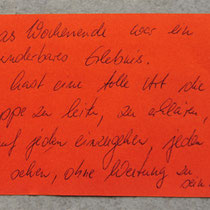 as Wochenende war ein
underbares Erlebnis.
hast eine tolle Art die
ppe zu leiten, zu erklären,
uf jeden einzugehen, jeden
sehen, ohne Wertung zu
sein